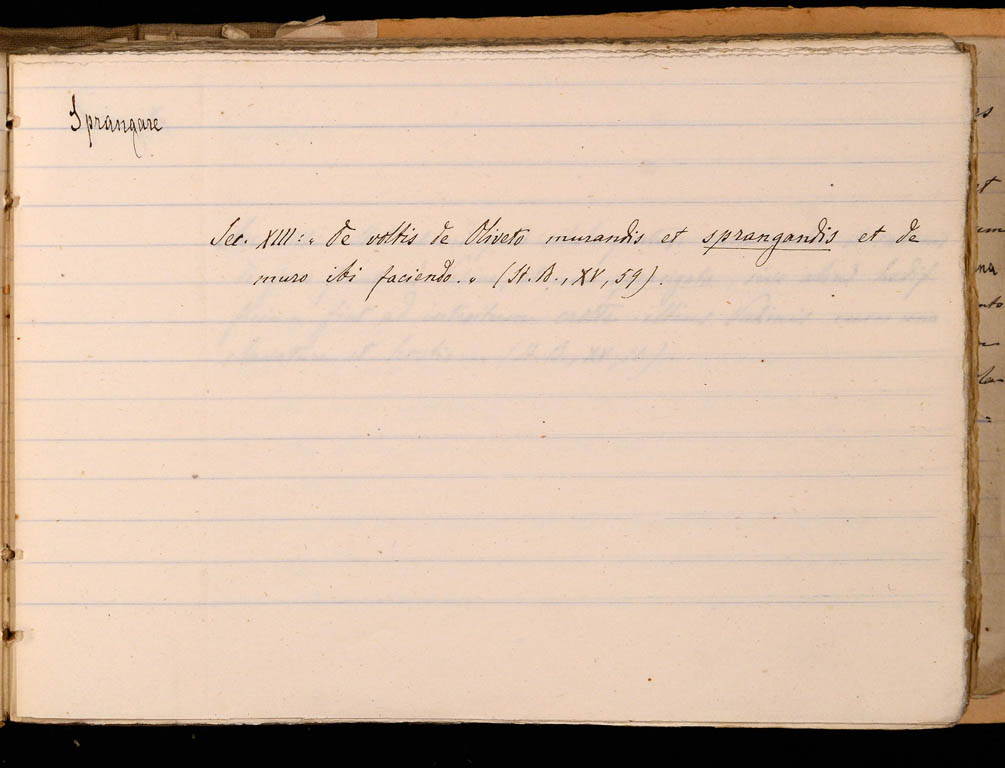 Sprangare
Sec. XIII: „ De voltis de Oliveto murandis et sprangandis et de
muro ibi faciendo. „ (St. B., XV, 59).